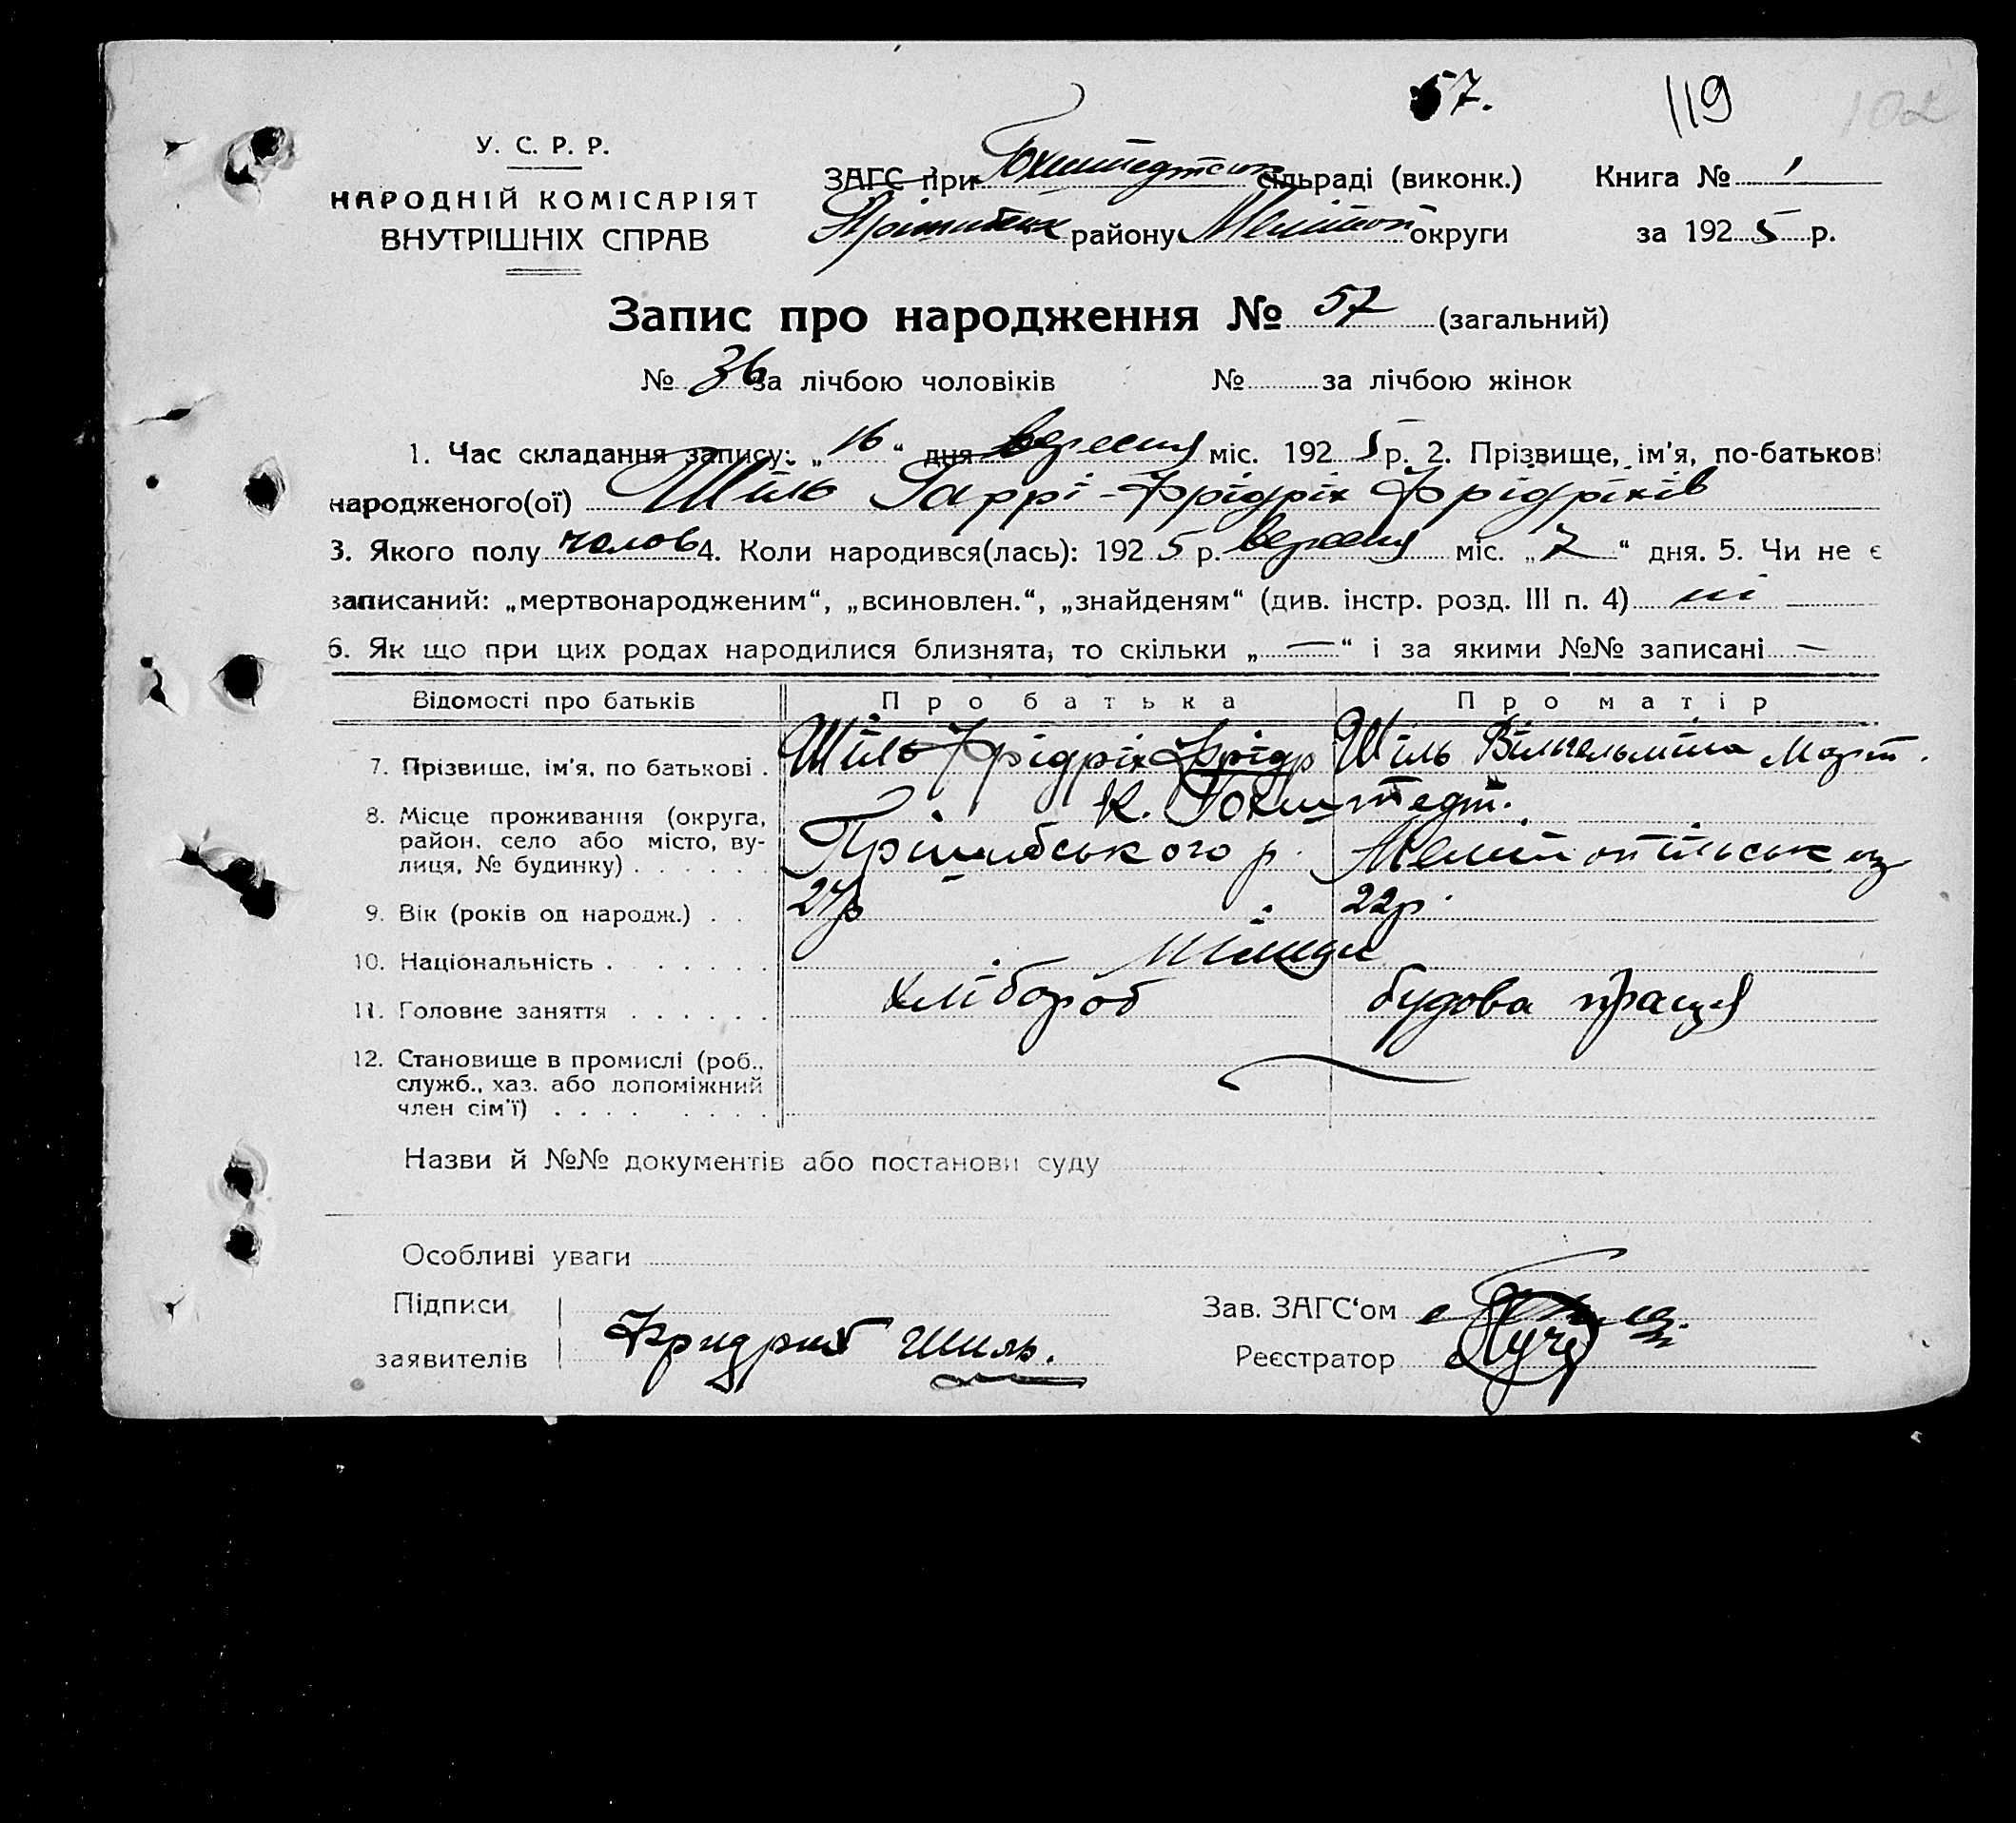 57. 119 102
У. С. Р. Р.
НАРОДНІЙ КОМІСАРІЯТ
ВНУТРІШНІХ СПРАВ
ЗАГС при Гохштедтськ сільраді (виконк.) Книга № 1
Пришибськ району Мелітоп округи за 1925 р.
Запис про народження № 57 (загальний)
№ 36 за лічбою чоловіків № за лічбою жінок
1. Час складання запису: „16“ дня вересня міс. 1925 р. 2. Прізвище, ім'я, по-батькові
народженого(ої) Шіль Гаррі-Фрідріх Фрідріхів
3. Якого полу чолов 4. Коли народився(лась): 1925 р. вересня міс. „7“ дня. 5. Чи не є
записаний: „мертвонародженим“, „всиновлен.“, „знайденям“ (див. інстр. розд. III п. 4) ні —
6. Як що при цих родах народилися близнята, то скільки „—“ і за якими №№ записані —
Відомості про батьків Про батька Про матір
7. Прізвище, ім'я, по батькові . Шіль Фрідріх Фрідр Шіль Вільгельміна Март.
8. Місце проживання (округа, К. Гохштедт.
район, село або місто, ву- Прішибського р. Мелітопільськ
лиця, № будинку) . . . . . .
9. Вік (років од народж.) . . 24р 22р.
10. Національність . . . . . . . німци
11. Головне заняття . . . . . . хлібороб будова праця
12. Становище в промислі (роб.,
служб., хаз. або допоміжний
член сім'ї) . . . . . . . .
Назви й №№ документів або постанови суду
Особливі уваги
Підписи Зав. ЗАГС'ом
заявителів Фридрих Шиль. Реєстратор